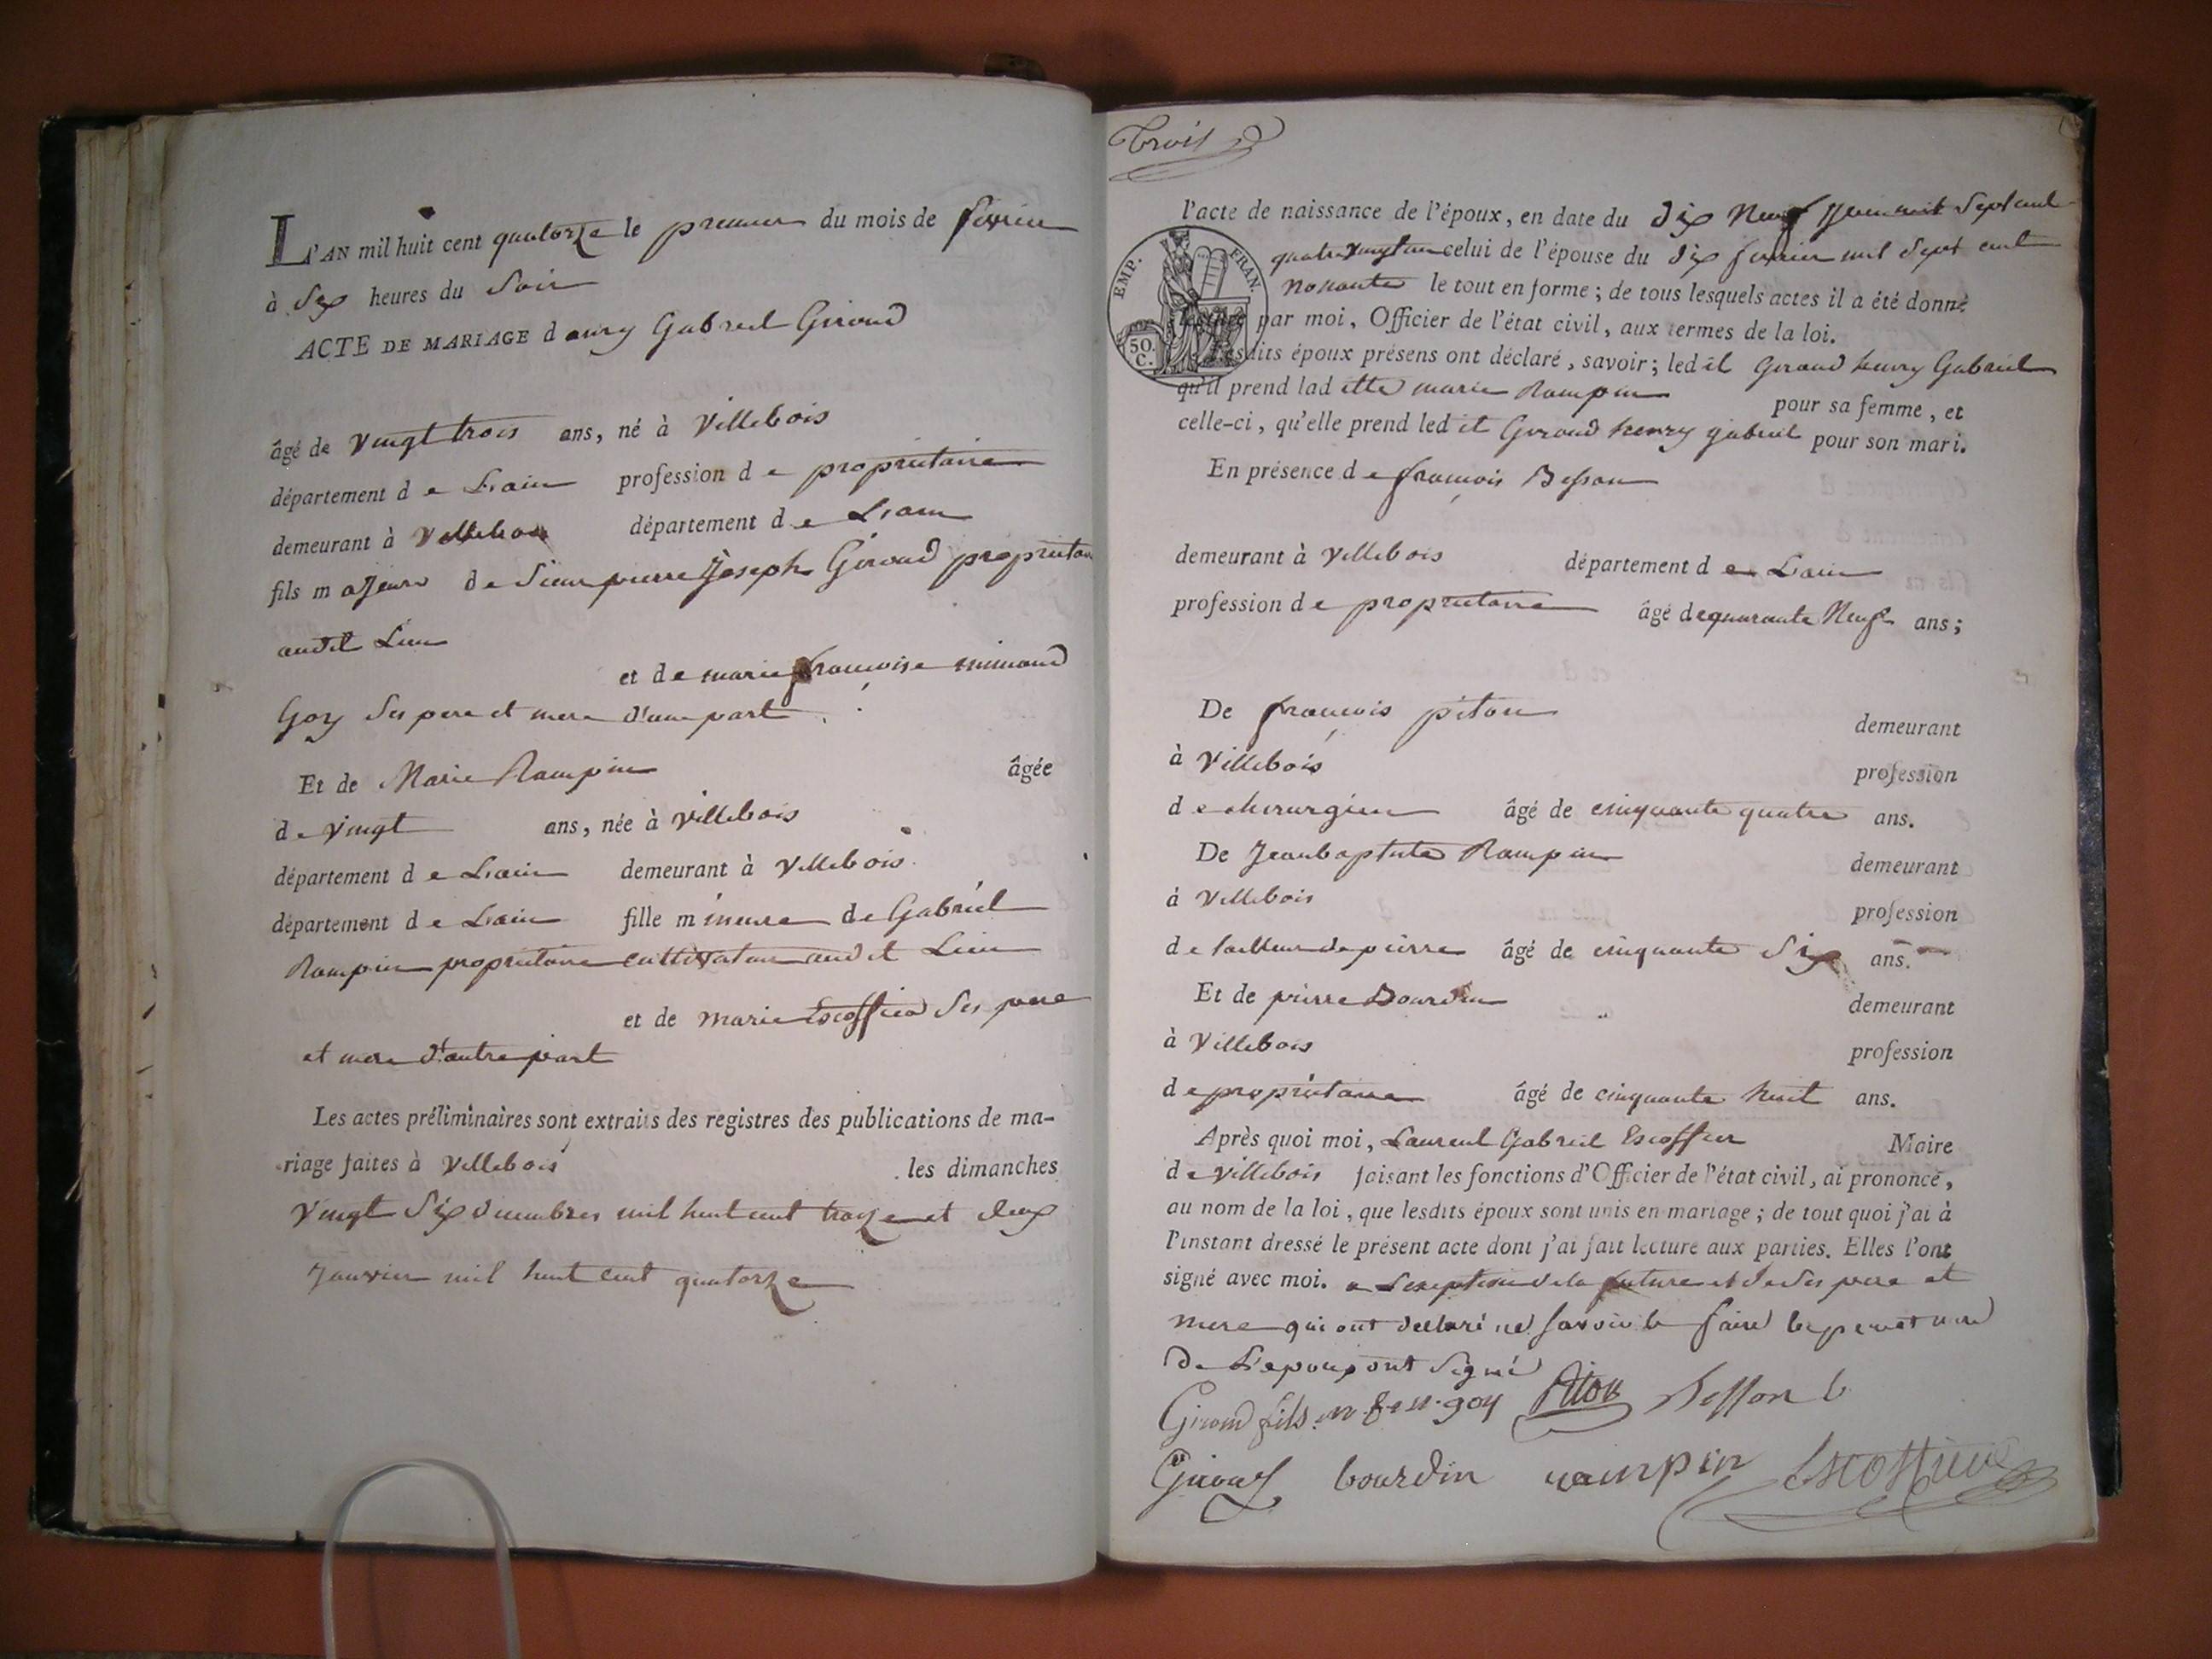 L'AN mil huit cent quatorze le premier du mois de fevrier
à Six heures du Soir
ACTE DE MARIAGE d Gabriel Giroud
âgé de vingt trois ans, né à villebois
département d e Lain profession d e proprietaire
demeurant à villebois département d e Lain
fils m ajeur de Sieur pierre Joseph Giroud proprietaire
audit Lieu
et d e marie francoise minand
Goy Ses pere et mere d'une part
Et de Marie Rampin âgée
d e vingt ans, née à villebois
département d e Lain demeurant à villebois
département d e Lain fille m ineure de Gabriel
Rampin proprietaire cultivateur audit Lieu
et de marie Escoffier Ses pere
et mere d'autre part
Les actes préliminaires sont extraits des registres des publications de ma-
riage faites à villebois les dimanches
vingt Six decembres mil huit cent treize et deux
Janvier mil huit cent quatorze
Trois
l'acte de naissance de l'époux, en date du dix Neuf mil Sept cent
quatre vingt celui de l'épouse du dix fevrier mil Sept cent
nonante le tout en forme ; de tous lesquels actes il a été donné
lecture par moi, Officier de l'état civil, aux termes de la loi.
EMP. FRAN.
50. C.
Lesdits époux présens ont déclaré, savoir ; led it Giroud henry Gabriel
qu'il prend lad itte marie Rampin pour sa femme, et
celle-ci, qu'elle prend led it Giroud henry gabriel pour son mari.
En présence d e francois Besson
demeurant à villebois département d e Lain
profession d e proprietaire âgé de quarante Neuf ans ;
De francois piton demeurant
à villebois profession
d e chirurgien âgé de cinquante quatre ans.
De Jean baptiste Rampin demeurant
à villebois profession
d e tailleur de pierre âgé de cinquante Six ans.
Et de pierre Bourdin demeurant
à villebois profession
d e proprietaire âgé de cinquante huit ans.
Après quoi moi, Laurent Gabriel Escoffier Maire
d e villebois faisant les fonctions d'Officier de l'état civil, ai prononcé,
au nom de la loi, que lesdits époux sont unis en mariage ; de tout quoi j'ai à
l'instant dressé le présent acte dont j'ai fait lecture aux parties. Elles l'ont
signé avec moi. a Lexeption de la future et de Ses pere et
mere qui ont declaré ne Savoir le faire le pere et mere
de L'epoux ont Signé
Giroud fils goy Piton Besson
Giroud bourdin rampin Escoffier